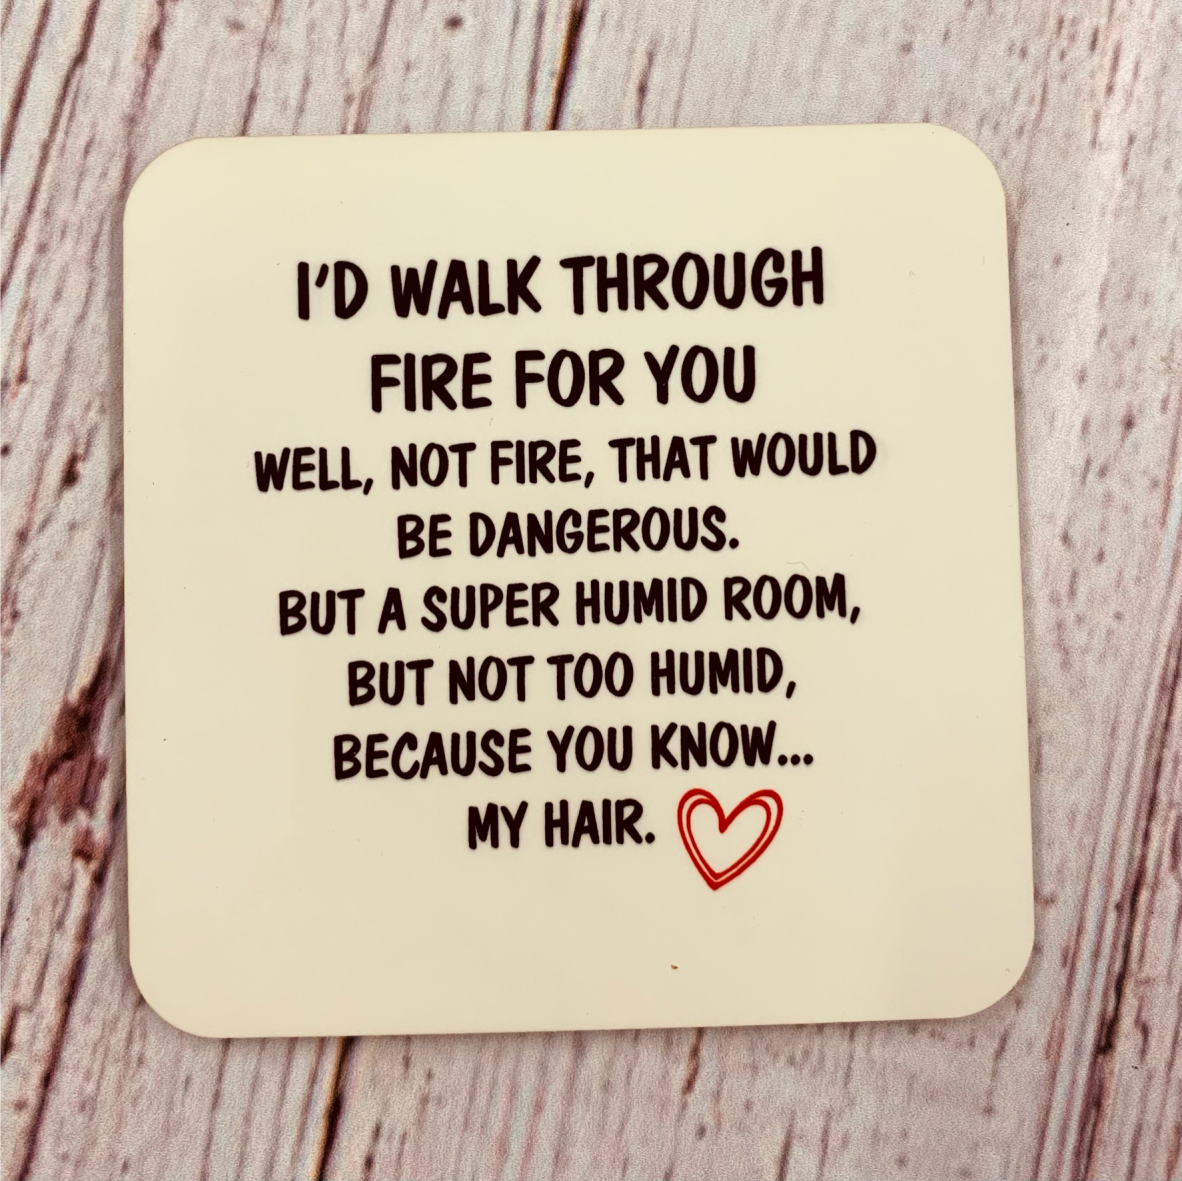 I'D WALK THROUGH
FIRE FOR YOU
WELL, NOT FIRE, THAT WOULD
BE DANGEROUS.
BUT A SUPER HUMID ROOM,
BUT NOT TOO HUMID,
BECAUSE YOU KNOW...
MY HAIR.